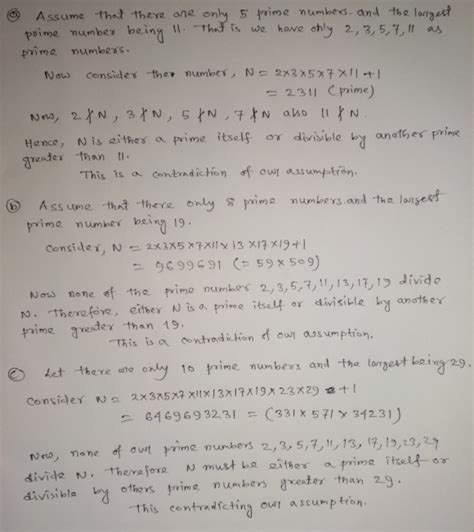 ⓐ Assume that there are only 5 prime numbers. and the largest
prime number being 11. That is we have only 2,3,5,7,11 as
prime numbers.
Now consider the number, N = 2×3×5×7×11+1
= 2311 (prime)
Now, 2∤N, 3∤N, 5∤N, 7∤N also 11∤N.
Hence, N is either a prime itself or divisible by another prime
greater than 11.
This is a contradiction of our assumption.
ⓑ Assume that there only 8 prime numbers and the largest
prime number being 19.
Consider, N = 2×3×5×7×11×13×17×19+1
= 9699691 (= 59×509)
Now none of the prime number 2,3,5,7,11,13,17,19 divide
N. Therefore, either N is a prime itself or divisible by another
prime greater than 19.
This is a contradiction of our assumption.
ⓒ Let there are only 10 prime numbers and the largest being 29.
Consider N = 2×3×5×7×11×13×17×19×23×29 +1
= 6469693231 = (331×571×34231)
Now, none of our prime numbers 2,3,5,7,11,13,17,19,23,29
divide N. Therefore N must be either a prime itself or
divisible by others prime numbers greater than 29.
This contradicting our assumption.